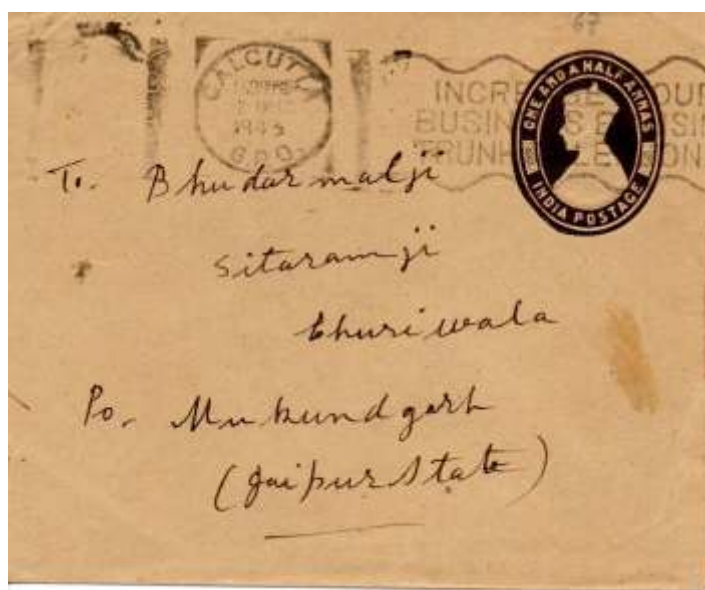 67
CALCUTTA
1945
G.P.O.
INCREASE YOUR
BUSINESS BY USING
TRUNK TELEPHONE
ONE AND A HALF ANNAS
INDIA POSTAGE
To. Bhudarmalji
Sitaramji
Churiwala
Po. Mukundgarh
(Jaipur State)